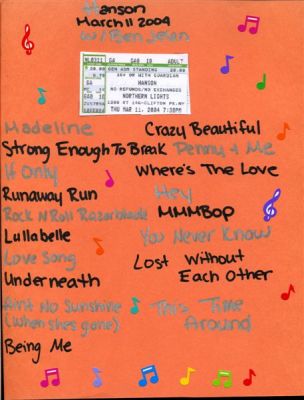 Hanson
March 11 2004
w/ Ben Jelen
NL0311 GA GA0 10 ADULT
GEN ADM STANDING
16+ OR WITH GUARDIAN
HANSON
NO REFUNDS/NO EXCHANGES
NORTHERN LIGHTS
1208 RT 146-CLIFTON PK.NY
THU MAR 11, 2004 7:30PM
Madeline
Strong Enough To Break
If Only
Runaway Run
Rock N Roll Razorblade
Lullabelle
Love Song
Underneath
Aint No Sunshine
(When shes gone)
Being Me
Crazy Beautiful
Penny & Me
Where's The Love
Hey
MMMBop
You Never Know
Lost Without
Each Other
This Time
Around